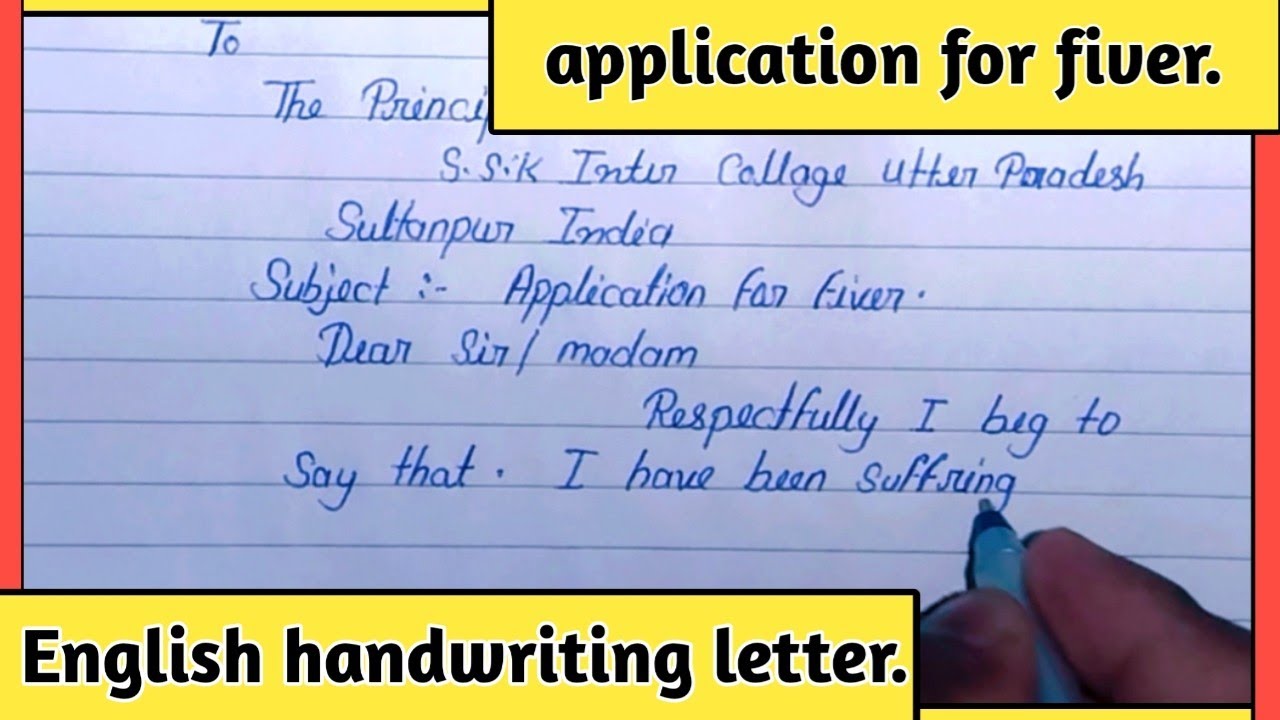 application for fiver.
To
The Princip
S.S.K Inter Collage Utter Pradesh
Sultanpur India
Subject :- Application for fiver.
Dear Sir/ madam
Respectfully I beg to
Say that. I have been suffring
English handwriting letter.